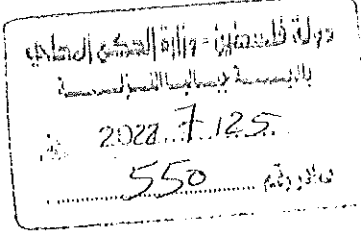 دولة فلسطين - وزارة الحكم المحلي
بلدية
2022 7 / 25
صادر رقم 550